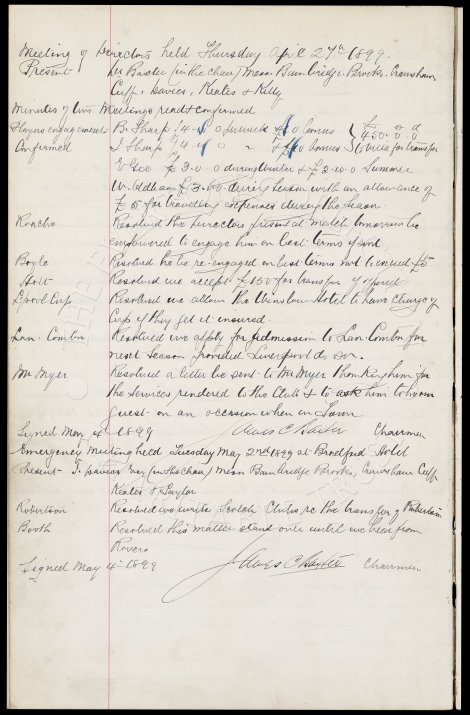 Meeting of Directors held Thursday April 27th 1899.
Present Dr Baxter (in the chair) Messrs Bainbridge, Brooks, Crawshaw
Cuff, Davies, Keates & Kelly
Minutes of last Meetings read & confirmed
Players engagements B. Sharp £4-0-0 per week & £10 bonus £450-0-0
Confirmed J Sharp £4-0-0 " & £10 bonus to Villa for transfer
E Gee £3-0-0 during Winter & £2-10-0 Summer
W. Oldham £3-0-0 during Season with an allowance of
£5 for travelling expenses during the Season
Resolved the Directors present at match tomorrow be
empowered to engage him on best terms of
Boyle Resolved he be re-engaged on best terms not to exceed £5
Holt Resolved we accept £150 for transfer if offered
Lpool Cup Resolved we allow the Winslow Hotel to have charge of
Cup if they get it insured.
Lan. Combn Resolved we apply for admission to Lan Combn for
next Season provided Liverpool do so.
Mr Myer Resolved a letter be sent to Mr Myer thanking him for
the services rendered to the Club & to ask him to be our
Guest on an occasion when in Town
Signed May 4th 1899 James C Baxter Chairman
Emergency Meeting held Tuesday May 2nd 1899 at Bradford Hotel
Present Dr Baxter (in the chair) Messrs Bainbridge Brooks, Crawshaw Cuff
Keates &
Robertson Resolved we write Scotch Clubs re the transfer of Robertson
Booth Resolved this matter stand over until we hear from
Rovers
Signed May 4th 1899 James C Baxter Chairman